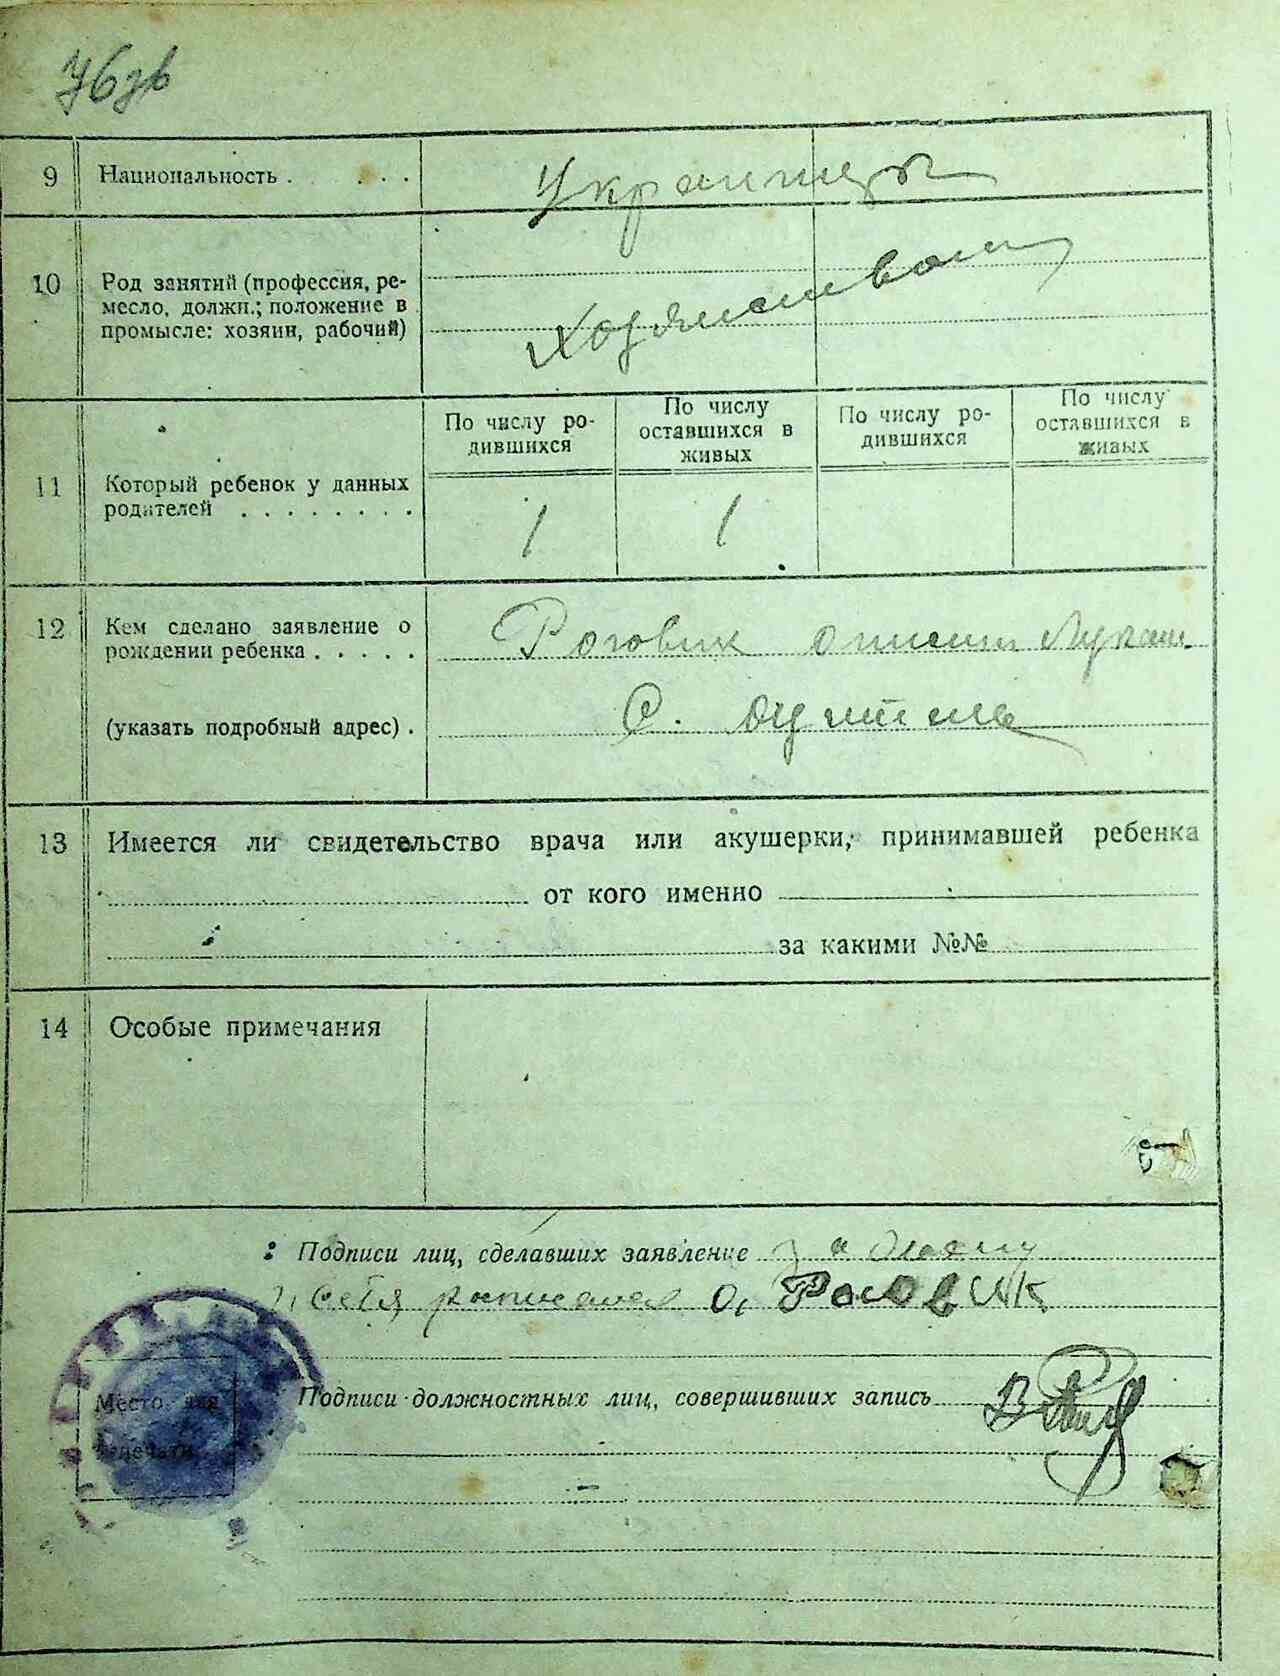 76зв
9 Национальность . . . . Украинцы
10 Род занятий (профессия, ре-
месло, должн.; положение в
промысле: хозяин, рабочий)
Хозяиством
11 Который ребенок у данных
родителей . . . . . . . .
По числу ро-
дившихся
По числу
оставшихся в
живых
По числу ро-
дившихся
По числу
оставшихся в
живых
1 1
12 Кем сделано заявление о
рождении ребенка . . . . . Роговик
(указать подробный адрес) . С.
13 Имеется ли свидетельство врача или акушерки, принимавшей ребенка
от кого именно
за какими №№
14 Особые примечания
Подписи лиц, сделавших заявление за
и себя росписался О, Роговик
Место для
печати
Подписи должностных лиц, совершивших запись